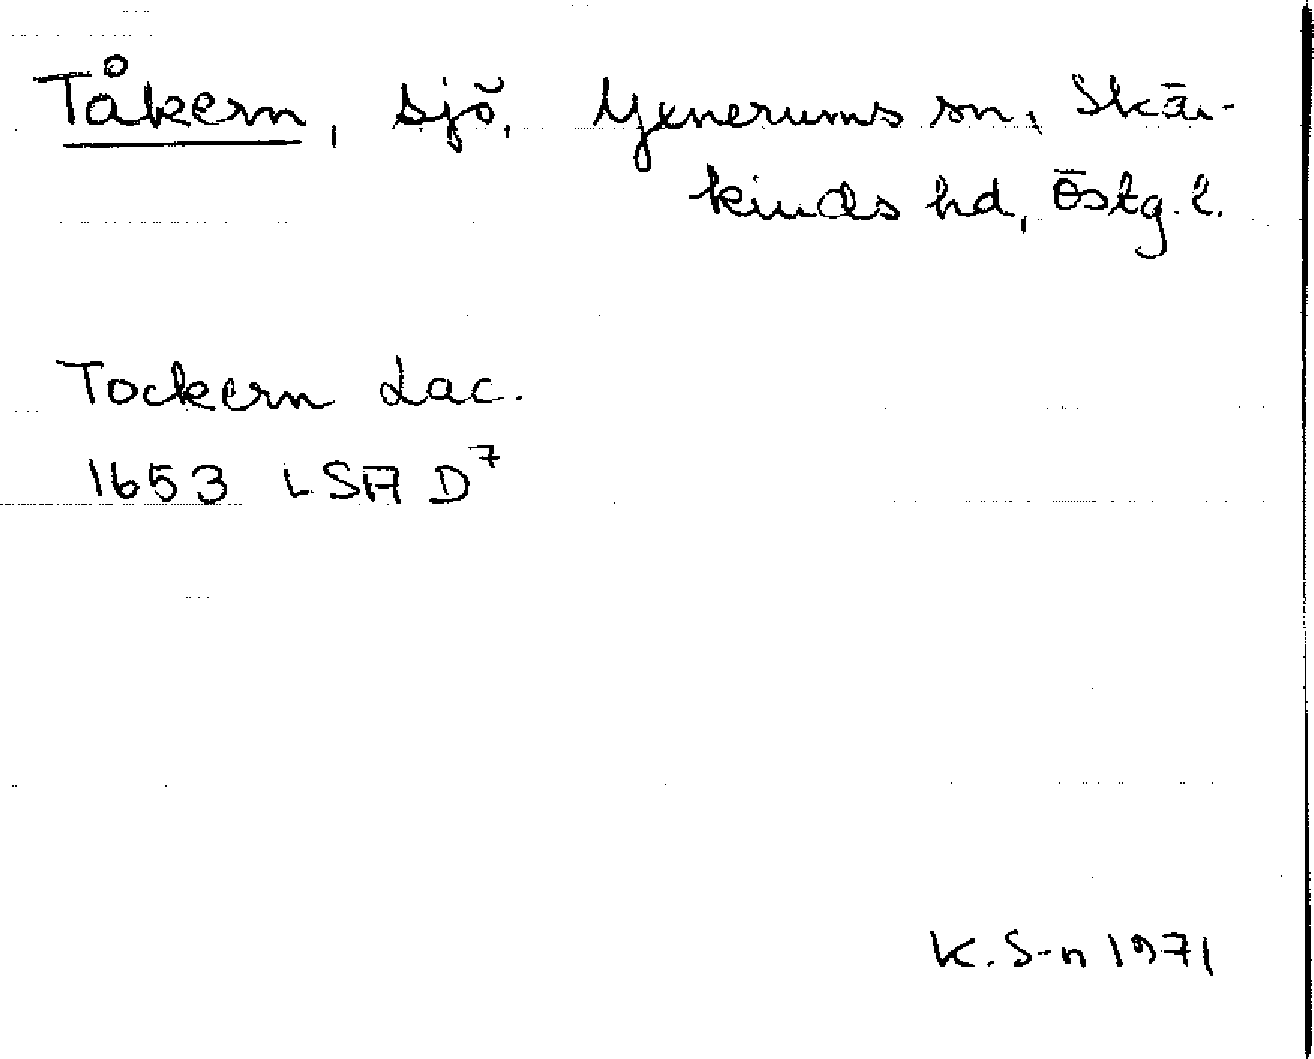 Tåkern, sjö, Yxnerums sn, Skär-
kinds hd, Östg. l.
Tockern Lac.
1653 LSA D7
K. S-n 1971